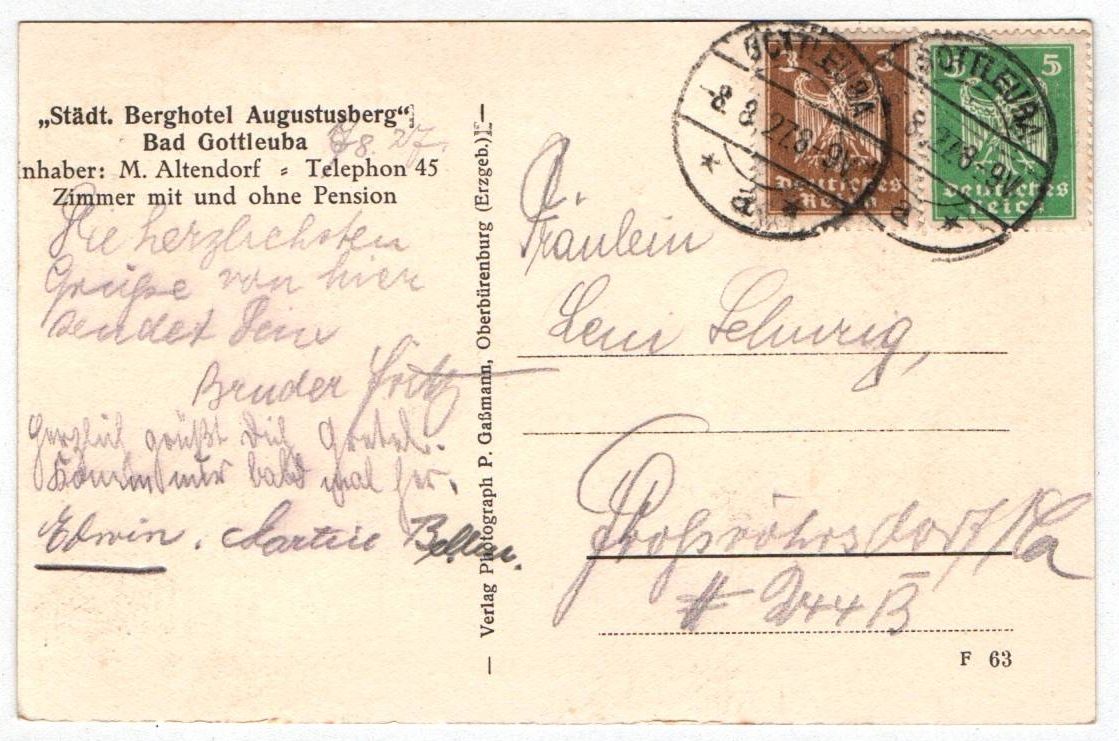 „Städt. Berghotel Augustusberg“
Bad Gottleuba
nhaber: M. Altendorf - Telephon 45
Zimmer mit und ohne Pension
8. 27.
Die herzlichsten
Grüße von hier
sendet Dein
Bruder Fritz
Herzlich grüßt Dich Gretel.
Komm nur bald mal her.
Edwin. Martin
Verlag Photograph P. Gaßmann, Oberbürenburg (Erzgeb.)
GOTTLEUBA
-8. 8. 27. 8-9N
a
GOTTLEUBA
8. 27. 8-9N
a
3 3
Deutsches
Reich
5 5
Deutsches
Reich
Fräulein
Leni Schurig,
Großröhrsdorf/Sa
# 244 B
F 63